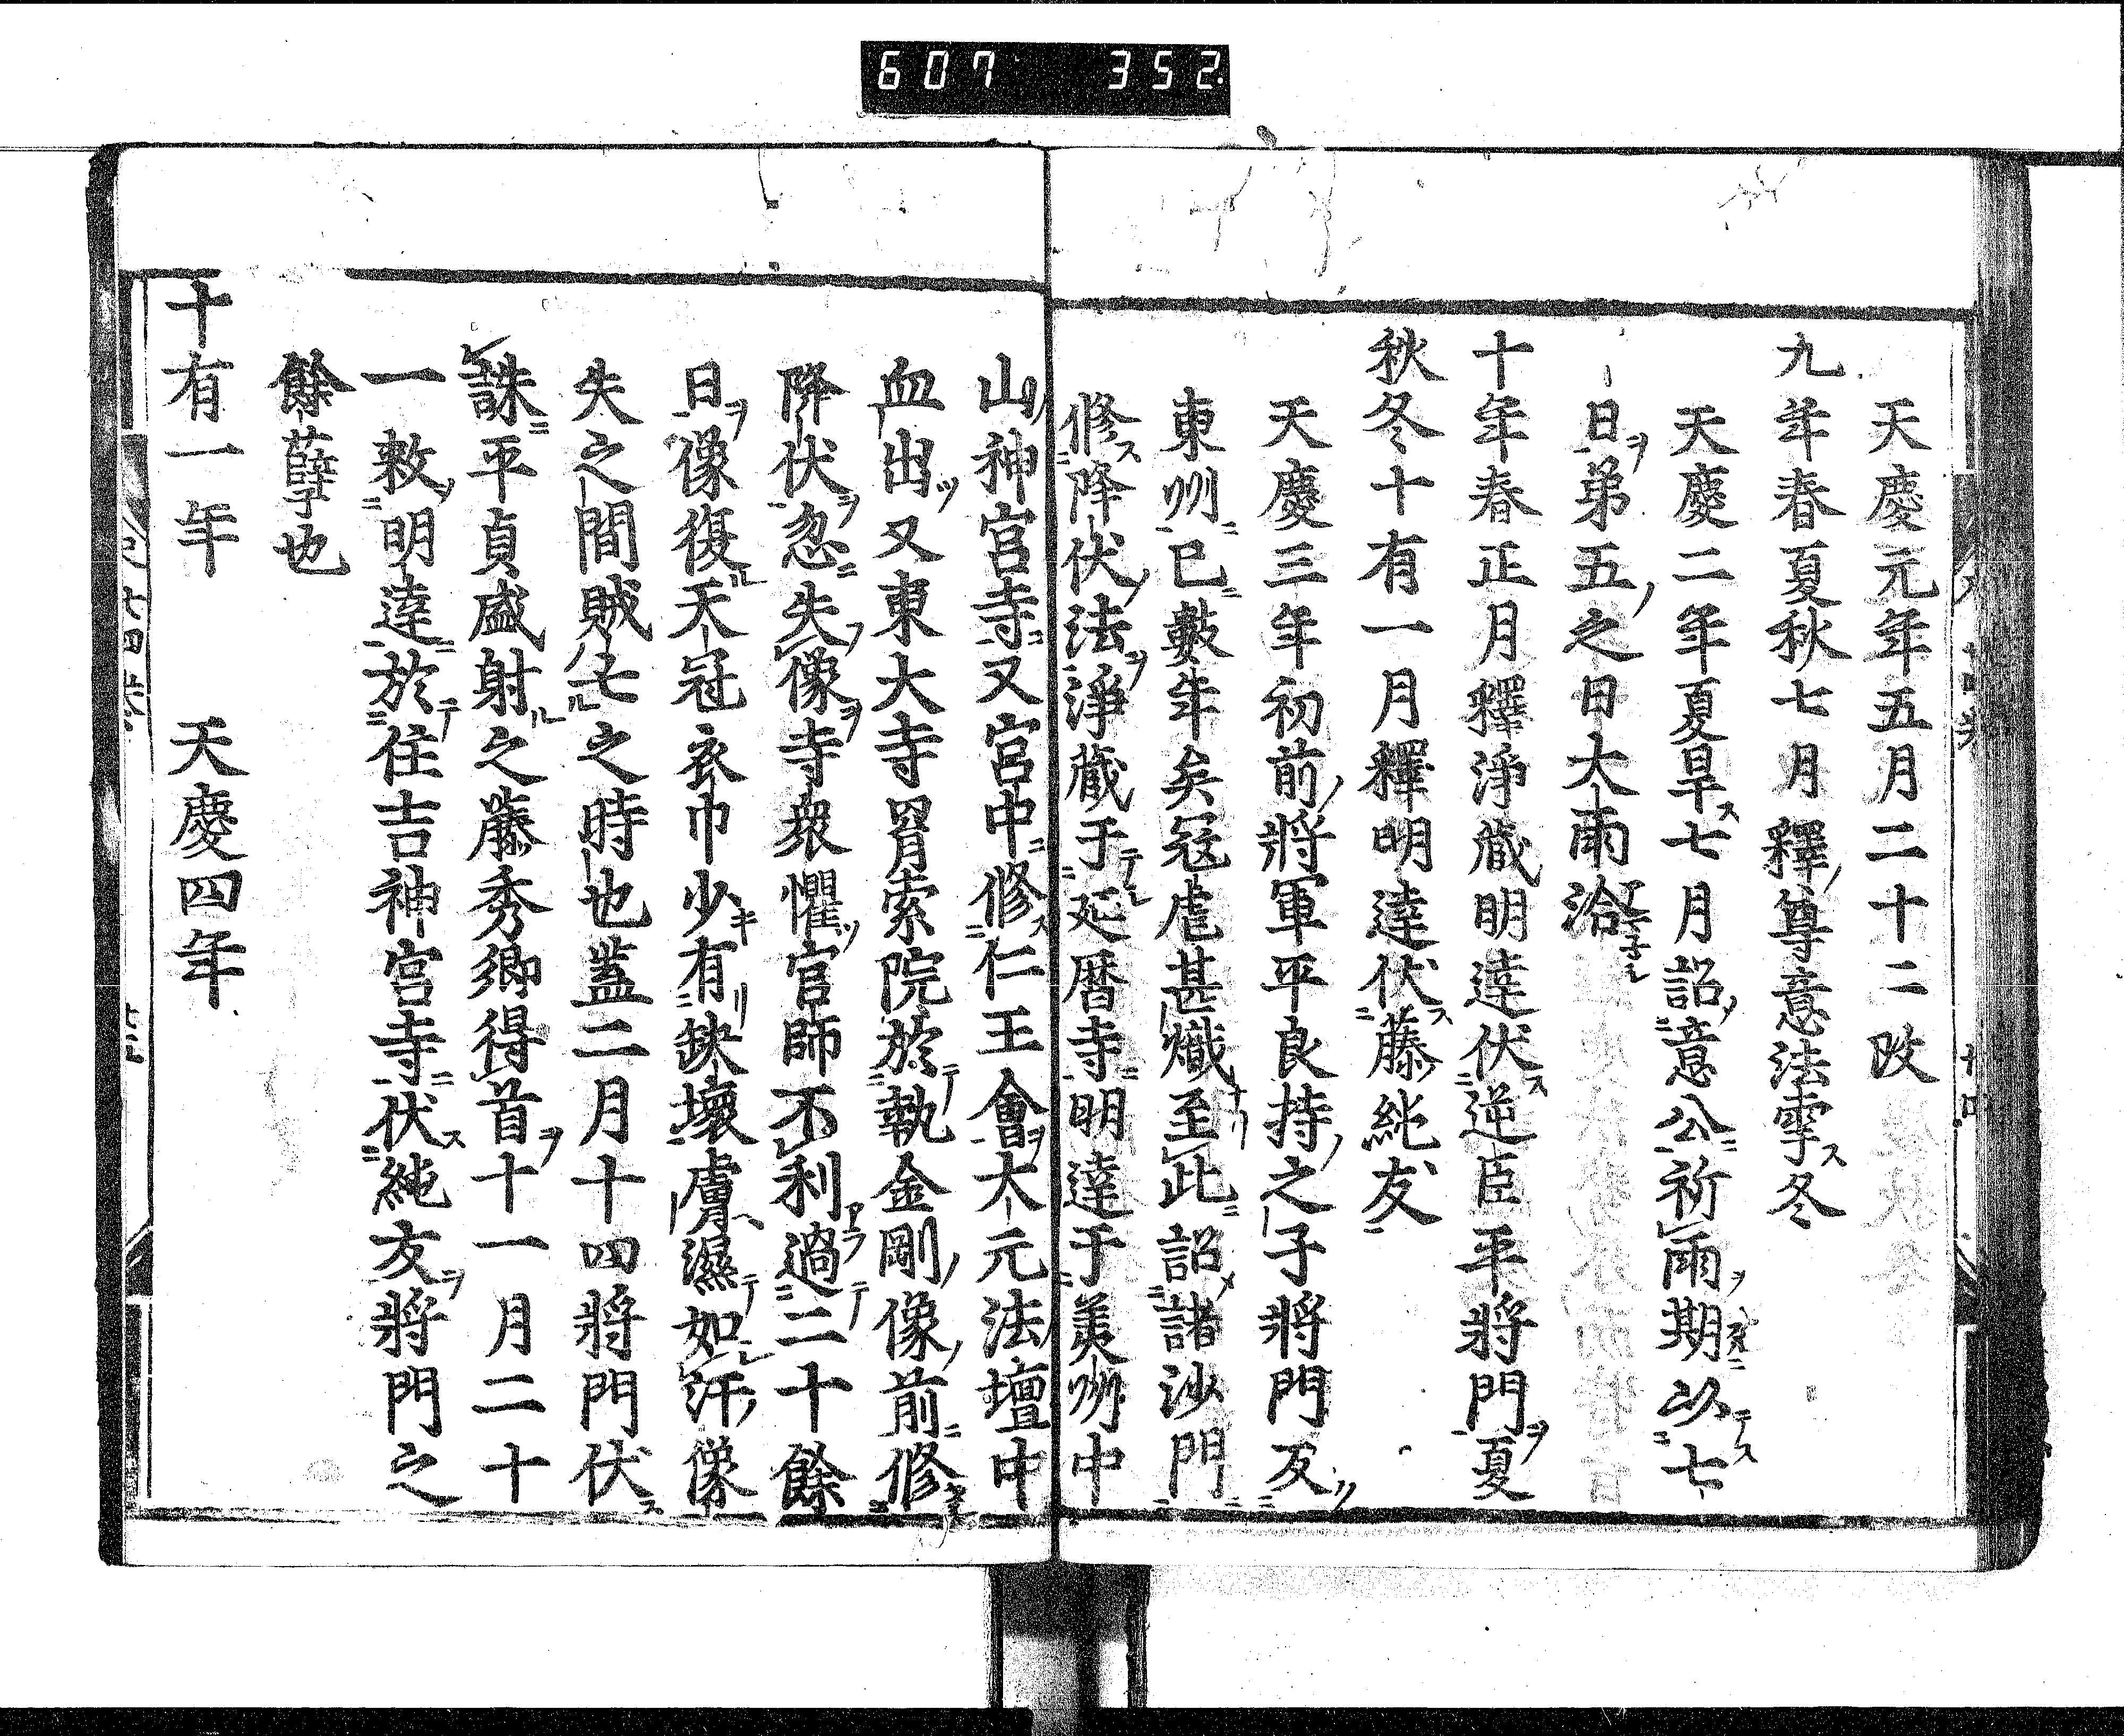 607 352
天慶元年五月二十二改
九年春夏秋七月釋尊意法雩冬
天慶二年夏旱七月詔意公祈雨期以七
日弟五之日大雨洽
十年春正月釋淨藏明達伏逆臣平將門夏
秋冬十有一月釋明達伏藤純友
天慶三年初前將軍平良持之子將門反
東州已數年矣寇虐甚熾至此詔諸沙門
修降伏法淨藏于延曆寺明達于美州中
山神宮寺又宮中修仁王會太元法壇中
血出又東大寺羂索院於執金剛像前修
降伏忽失像寺衆懼官師不利過二十餘
日像復天冠衣巾少有缺壞膚濕如汗像
失之間賊亡之時也蓋二月十四將門伏
誅平貞盛射之藤秀卿得首十一月二十
一敕明達於住吉神宮寺伏純友將門之
餘孽也
十有一年 天慶四年